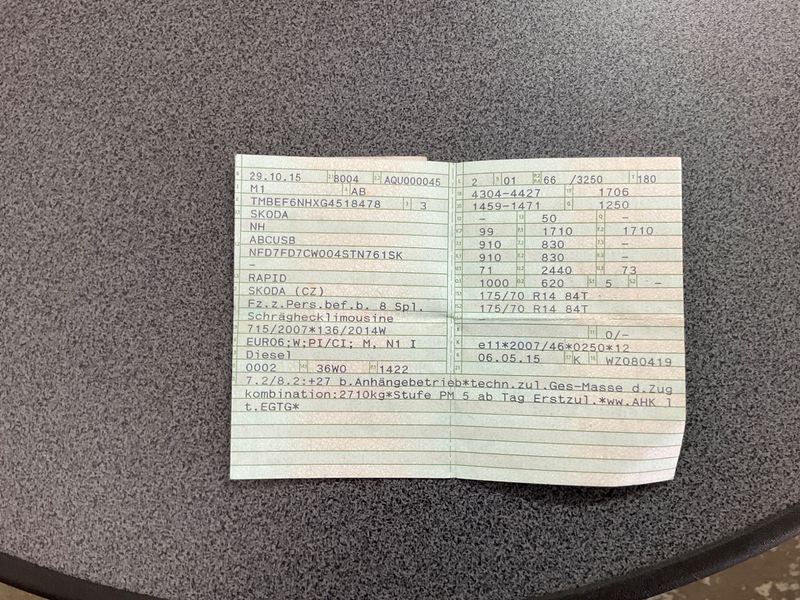 29.10.15 8004 AQU000045
M1 AB
TMBEF6NHXG4518478 3
SKODA
NH
ABCUSB
NFD7FD7CW004STN761SK
–
RAPID
SKODA (CZ)
Fz.z.Pers.bef.b. 8 Spl.
Schräghecklimousine
715/2007*136/2014W
EURO6;W;PI/CI; M, N1 I
Diesel
0002 36W0 1422
2 01 66 /3250 180
4304-4427 1706
1459-1471 1250
– 50 –
99 1710 1710
910 830 –
910 830 –
71 2440 73
1000 620 5 –
175/70 R14 84T
175/70 R14 84T
0/–
e11*2007/46*0250*12
06.05.15 K WZ080419
7.2/8.2:+27 b.Anhängebetrieb*techn.zul.Ges-Masse d.Zug
kombination:2710kg*Stufe PM 5 ab Tag Erstzul.*ww.AHK l
t.EGTG*